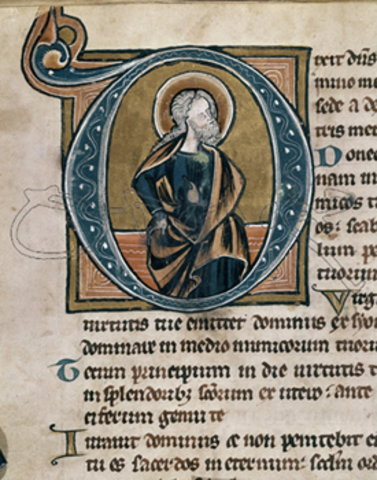 Dixit dñs
mino me
sede a de
tris mei
Donec
nam in
micos t
os: scab
lum pe
tuorum
Virg
uirtutis tue emittet dominus ex syon
dominare in medio inimicorum tuoru
Tecum principium in die uirtutis t
in splendorib; scõrum ex utero: ante
ciferum genui te
Iurauit dominus et non penitebit e
tu es sacerdos in eternum: scdm ord